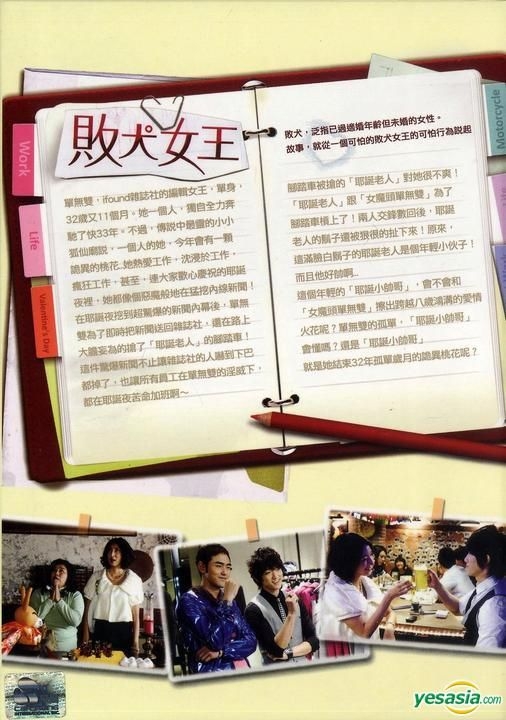 敗犬女王
單無雙，ifound雜誌社的編輯女王，單身，
32歲又11個月。她一個人，獨自全力奔
馳了快33年。不過，傳說中最靈的小小
狐仙廟說，一個人的她，今年會有一顆
詭異的桃花..她熱愛工作，沈浸於工作，
瘋狂工作，甚至，連大家歡心慶祝的耶誕
夜裡，她都像個惡魔般地在猛挖內線新聞！
在耶誕夜挖到超驚爆的新聞內幕後，單無
雙為了即時把新聞送回雜誌社，還在路上
大膽妄為的搶了「耶誕老人」的腳踏車！
這件驚爆新聞不止讓雜誌社的人嚇到下巴
都掉了，也讓所有員工在單無雙的淫威下，
都在耶誕夜苦命加班啊～
敗犬，泛指已過適婚年齡但未婚的女性。
故事，就從一個可怕的敗犬女王的可怕行為說起
腳踏車被搶的「耶誕老人」對她很不爽！
「耶誕老人」跟「女魔頭單無雙」為了
腳踏車槓上了！兩人交鋒數回後，耶誕
老人的鬍子還被狠狠的扯下來！原來，
這滿臉白鬍子的耶誕老人是個年輕小伙子！
而且他好帥啊..
這個年輕的「耶誕小帥哥」，會不會和
「女魔頭單無雙」擦出跨越八歲鴻溝的愛情
火花呢？單無雙的孤單，「耶誕小帥哥」
會懂嗎？還是「耶誕小帥哥」
就是她結束32年孤單歲月的詭異桃花呢？
Work
Life
Valentine's Day
Motorcycle
yesasia.com